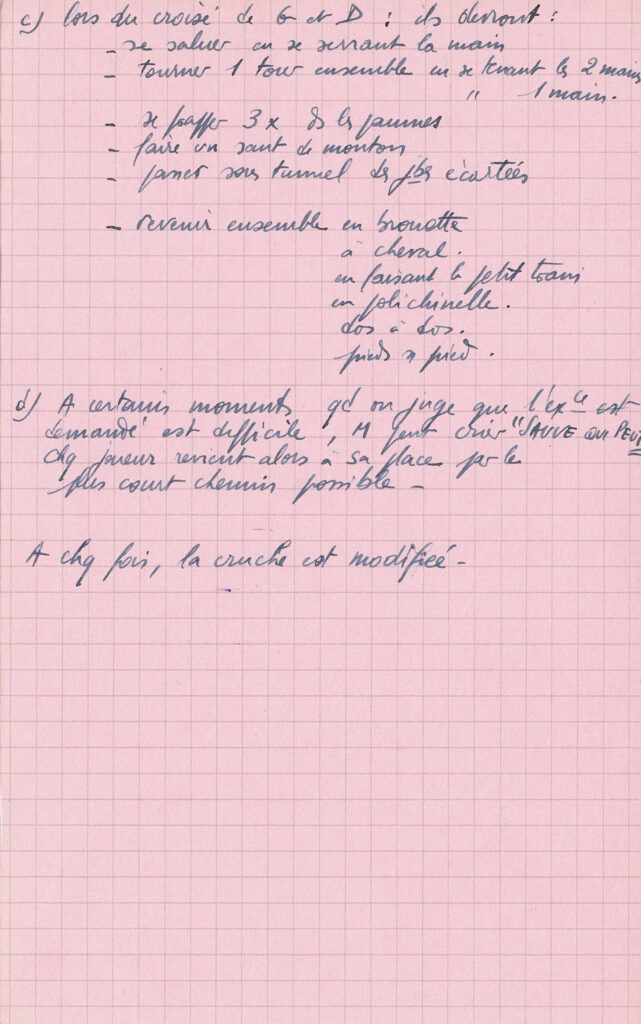 c) lors du croisé de G et D : ils devront :
- se saluer en se serrant la main
- tourner 1 tour ensemble en se tenant les 2 mains
" 1 main.
- se frapper 3 x ds les paumes
- faire un saut de mouton
- passer sous tunnel des jbes écartées
- revenir ensemble en brouette
à cheval.
en faisant le petit train
en polichinelle.
dos à dos.
pieds à pied.
d) A certains moments qd on juge que l'exce est
demandé est difficile, M peut crier "SAUVE QUI PEUT
chq joueur revient alors à sa place par le
plus court chemin possible -
A chq fois, la cruche est modifiée -